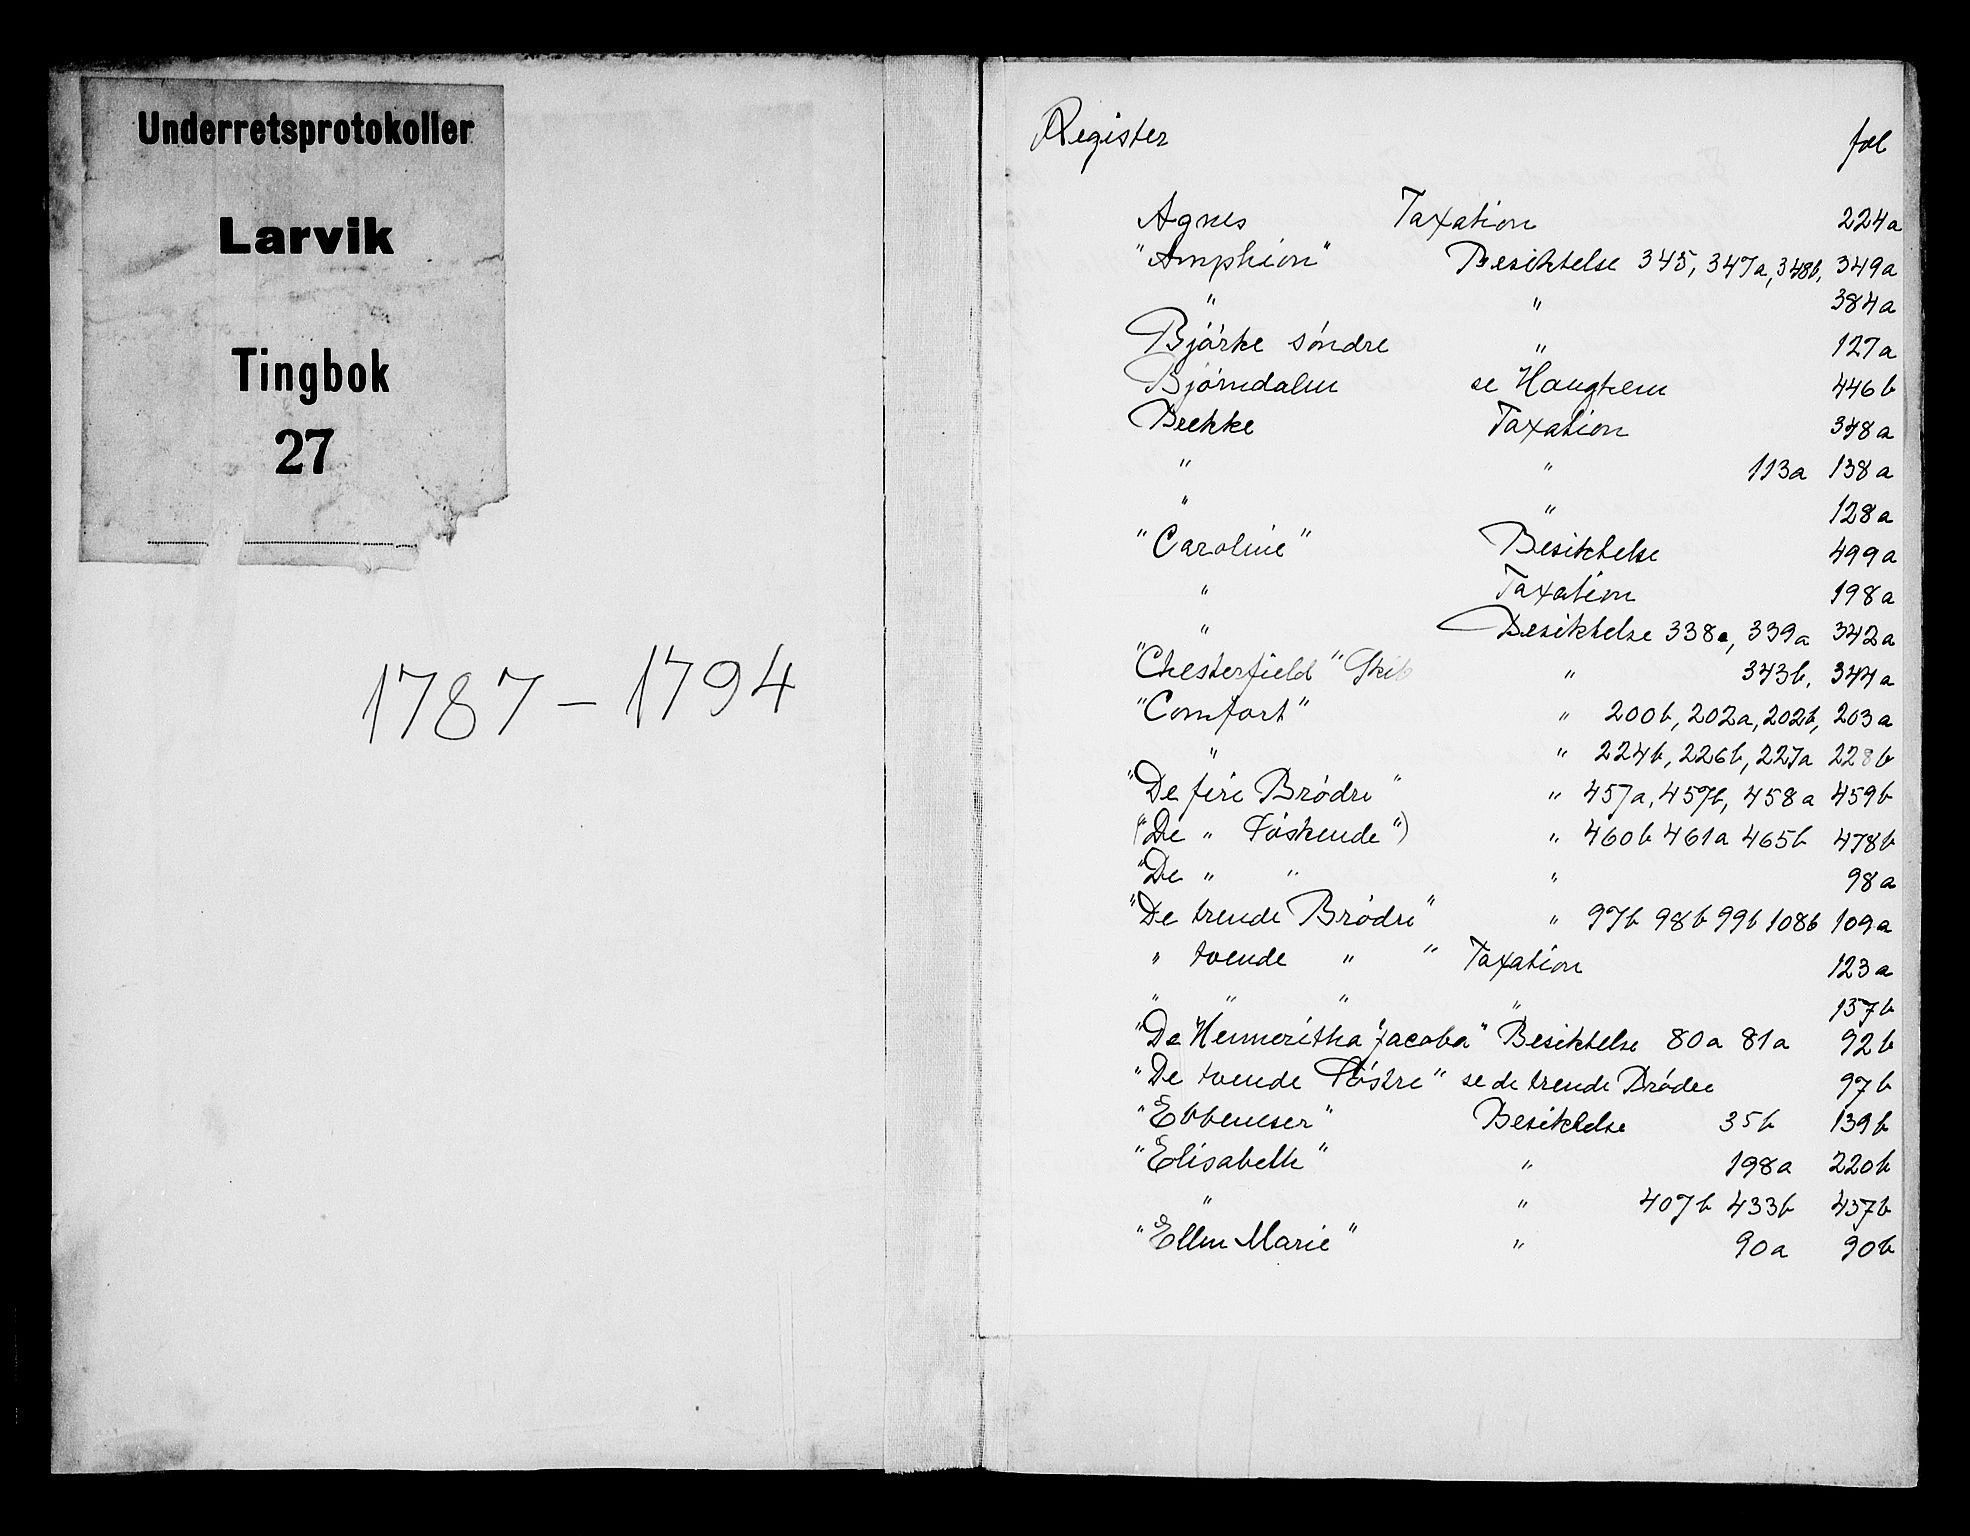 Underretsprotokoller
Larvik
Tingbok
27
1787 – 1794
Register fol
Agnes Taxation 224a
"Amphion" Besiktelse 345, 347a, 348b, 349a
" " 384a
Bjørke søndre " 127a
Bjørndalen se Haugtem 446b
Brekke Taxation 348a
" " 113a 138a
" " 128a
"Caroline" Besiktelse 499a
" Taxation 198a
" Besiktelse 338a, 339a 342a
"Chesterfield" Skib " 343b, 344a
"Comfort" " 200b, 202a, 202b, 203a
" " 224b, 226b, 227a 228b
"De fire Brødre" " 457a, 457b, 458a 459b
("De " Søskende") " 460b 461a 465b 478b
"De " " " 98a
"De trende Brødre" " 97b 98b 99b 108b 109a
" tvende " " Taxation 123a
" " " " 137b
"De Henneritha Jacoba" Besiktelse 80a 81a 92b
"De tvende Søstre" se de trende Brødre 97b
"Ebbeneser" Besiktelse 35b 139b
"Elisabeth" " 198a 220b
" " 407b 433b 437b
"Ellen Marie" " 90a 90b